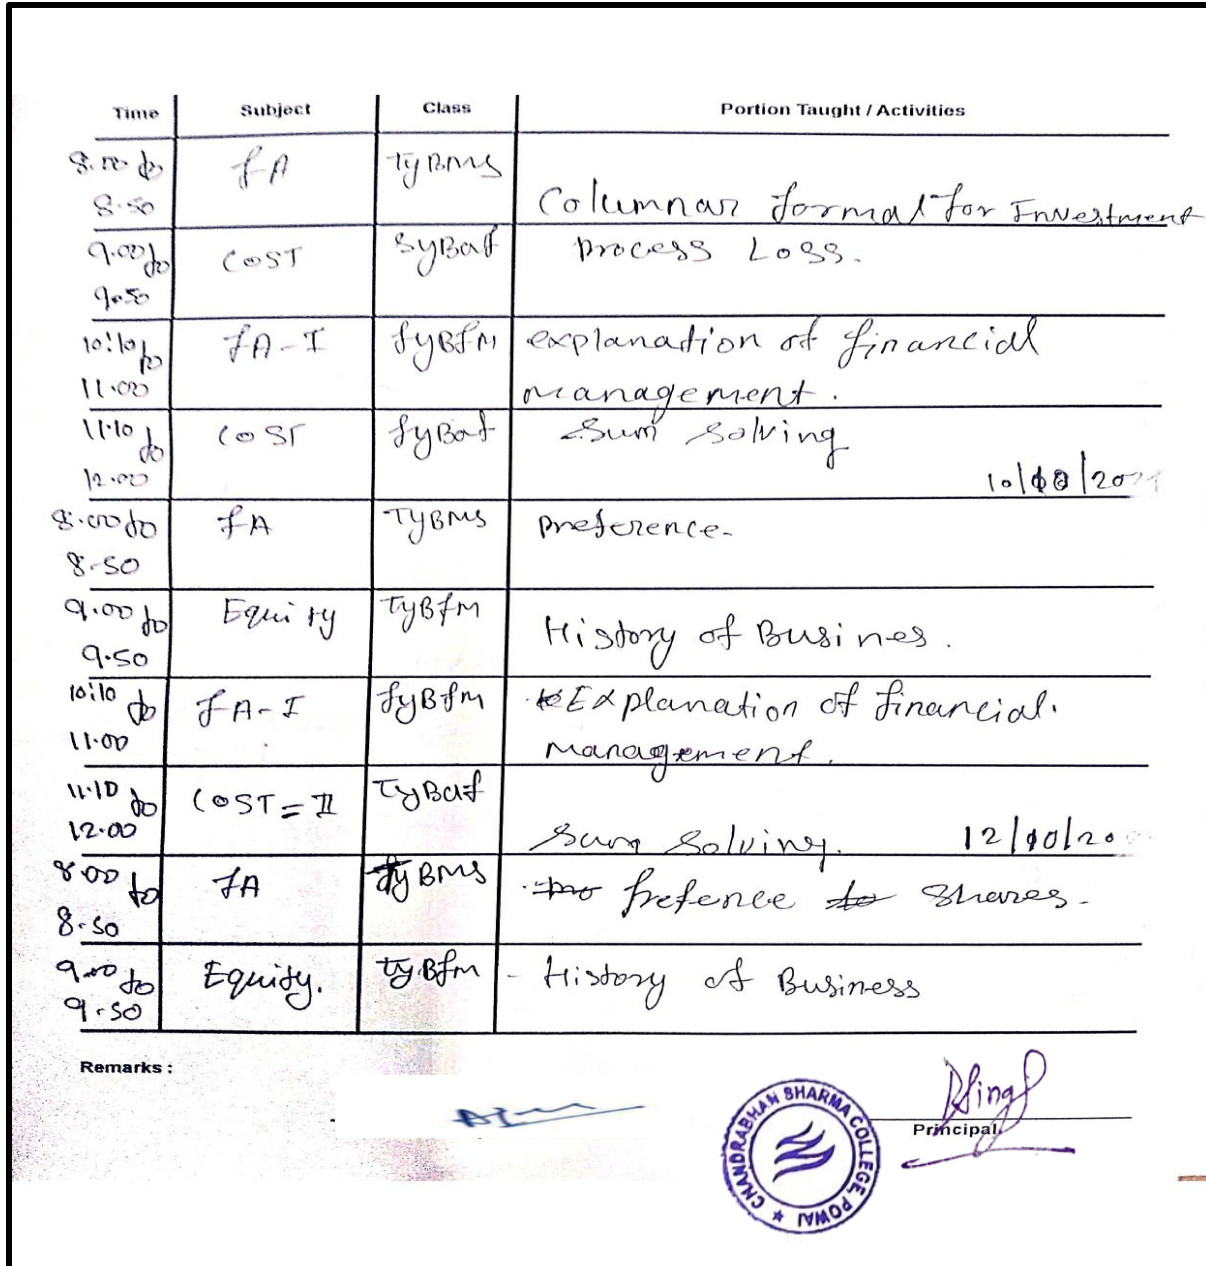 Time Subject Class Portion Taught / Activities
8.00 to FA TyBMS
8.50 Columnar formal for Investment
9.00 to COST SyBaf Process Loss.
9.50
10:10 to FA-I fyBfM explanation of financial
11.00 management.
11.10 to COST fyBaf Sum solving
12.00 10/10/2021
8.00 to FA TyBMS preference.
8.50
9.00 to Equity TyBfM
9.50 History of Busines.
10:10 to FA-I fyBfM Explanation of financial.
11.00 management.
11.10 to COST = II TyBaf
12.00 Sum Solving. 12/10/20
8.00 to FA TyBMS prefence to Shares.
8.50
9.00 to Equity. TyBfm - History of Business
9.50
Remarks :
Principal
CHANDRABHAN SHARMA COLLEGE, POWAI